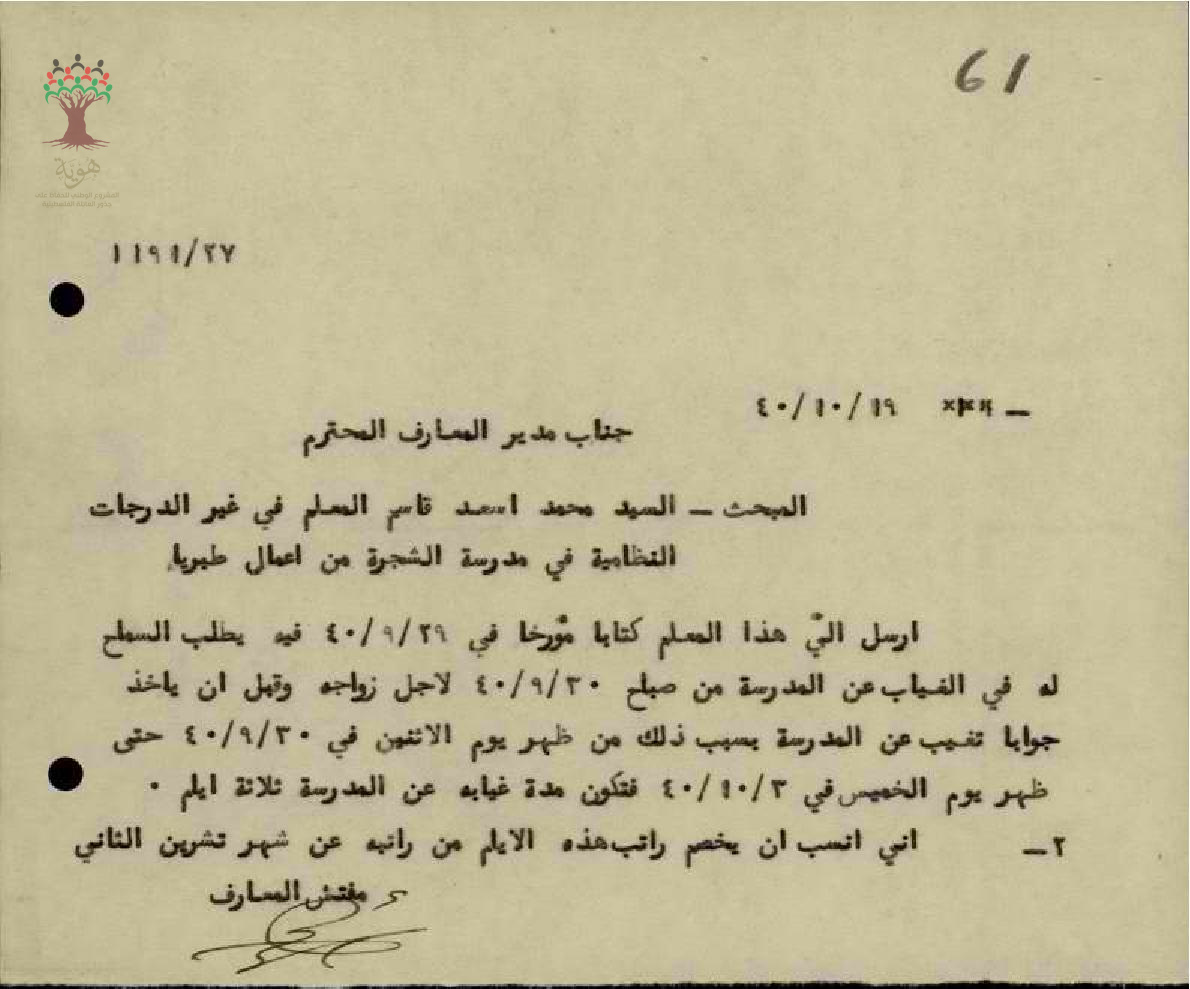 61
هوية
المشروع الوطني للحفاظ على
جذور العائلة الفلسطينية
١١٩١/٢٧
٤٠/١٠/١٩
جناب مدير المعارف المحترم
المبحث – السيد محمد اسعد قاسم المعلم في غير الدرجات
النظامية في مدرسة الشجرة من اعمال طبريا
ارسل اليّ هذا المعلم كتابا مؤرخا في ٤٠/٩/٢٩ فيه يطلب السماح
له في الغياب عن المدرسة من صباح ٤٠/٩/٣٠ لاجل زواجه وقبل ان ياخذ
جوابا تغيب عن المدرسة بسبب ذلك من ظهر يوم الاثنين في ٤٠/٩/٣٠ حتى
ظهر يوم الخميس في ٤٠/١٠/٣ فتكون مدة غيابه عن المدرسة ثلاثة ايام ٠
٢– اني انسب ان يخصم راتب هذه الايام من راتبه عن شهر تشرين الثاني
مفتش المعارف